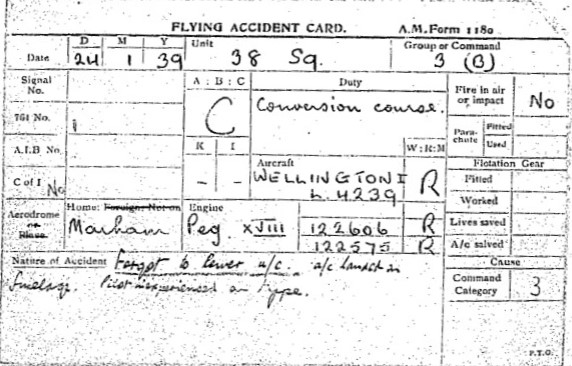 FLYING ACCIDENT CARD. A.M. Form 1180
D M Y Unit Group or Command
Date 24 1 39 38 Sq. 3 (B)
Signal No. A : B : C Duty Fire in air or impact No
C Conversion course.
761 No. 1 Para- chute Fitted
Used
K I W : R : M
A.I.B No. Aircraft Flotation Gear
C of I No - - WELLINGTON I R Fitted
L.4239 Worked
Aerodrome or Place Home: Foreign: Not on Engine
Marham Peg. XVIII 122606 R Lives saved
122575 R A/c salved
Nature of Accident Forgot to lower u/c. a/c landed on Cause
fuselage. Pilot inexperienced on type. Command Category 3
P.T.O.